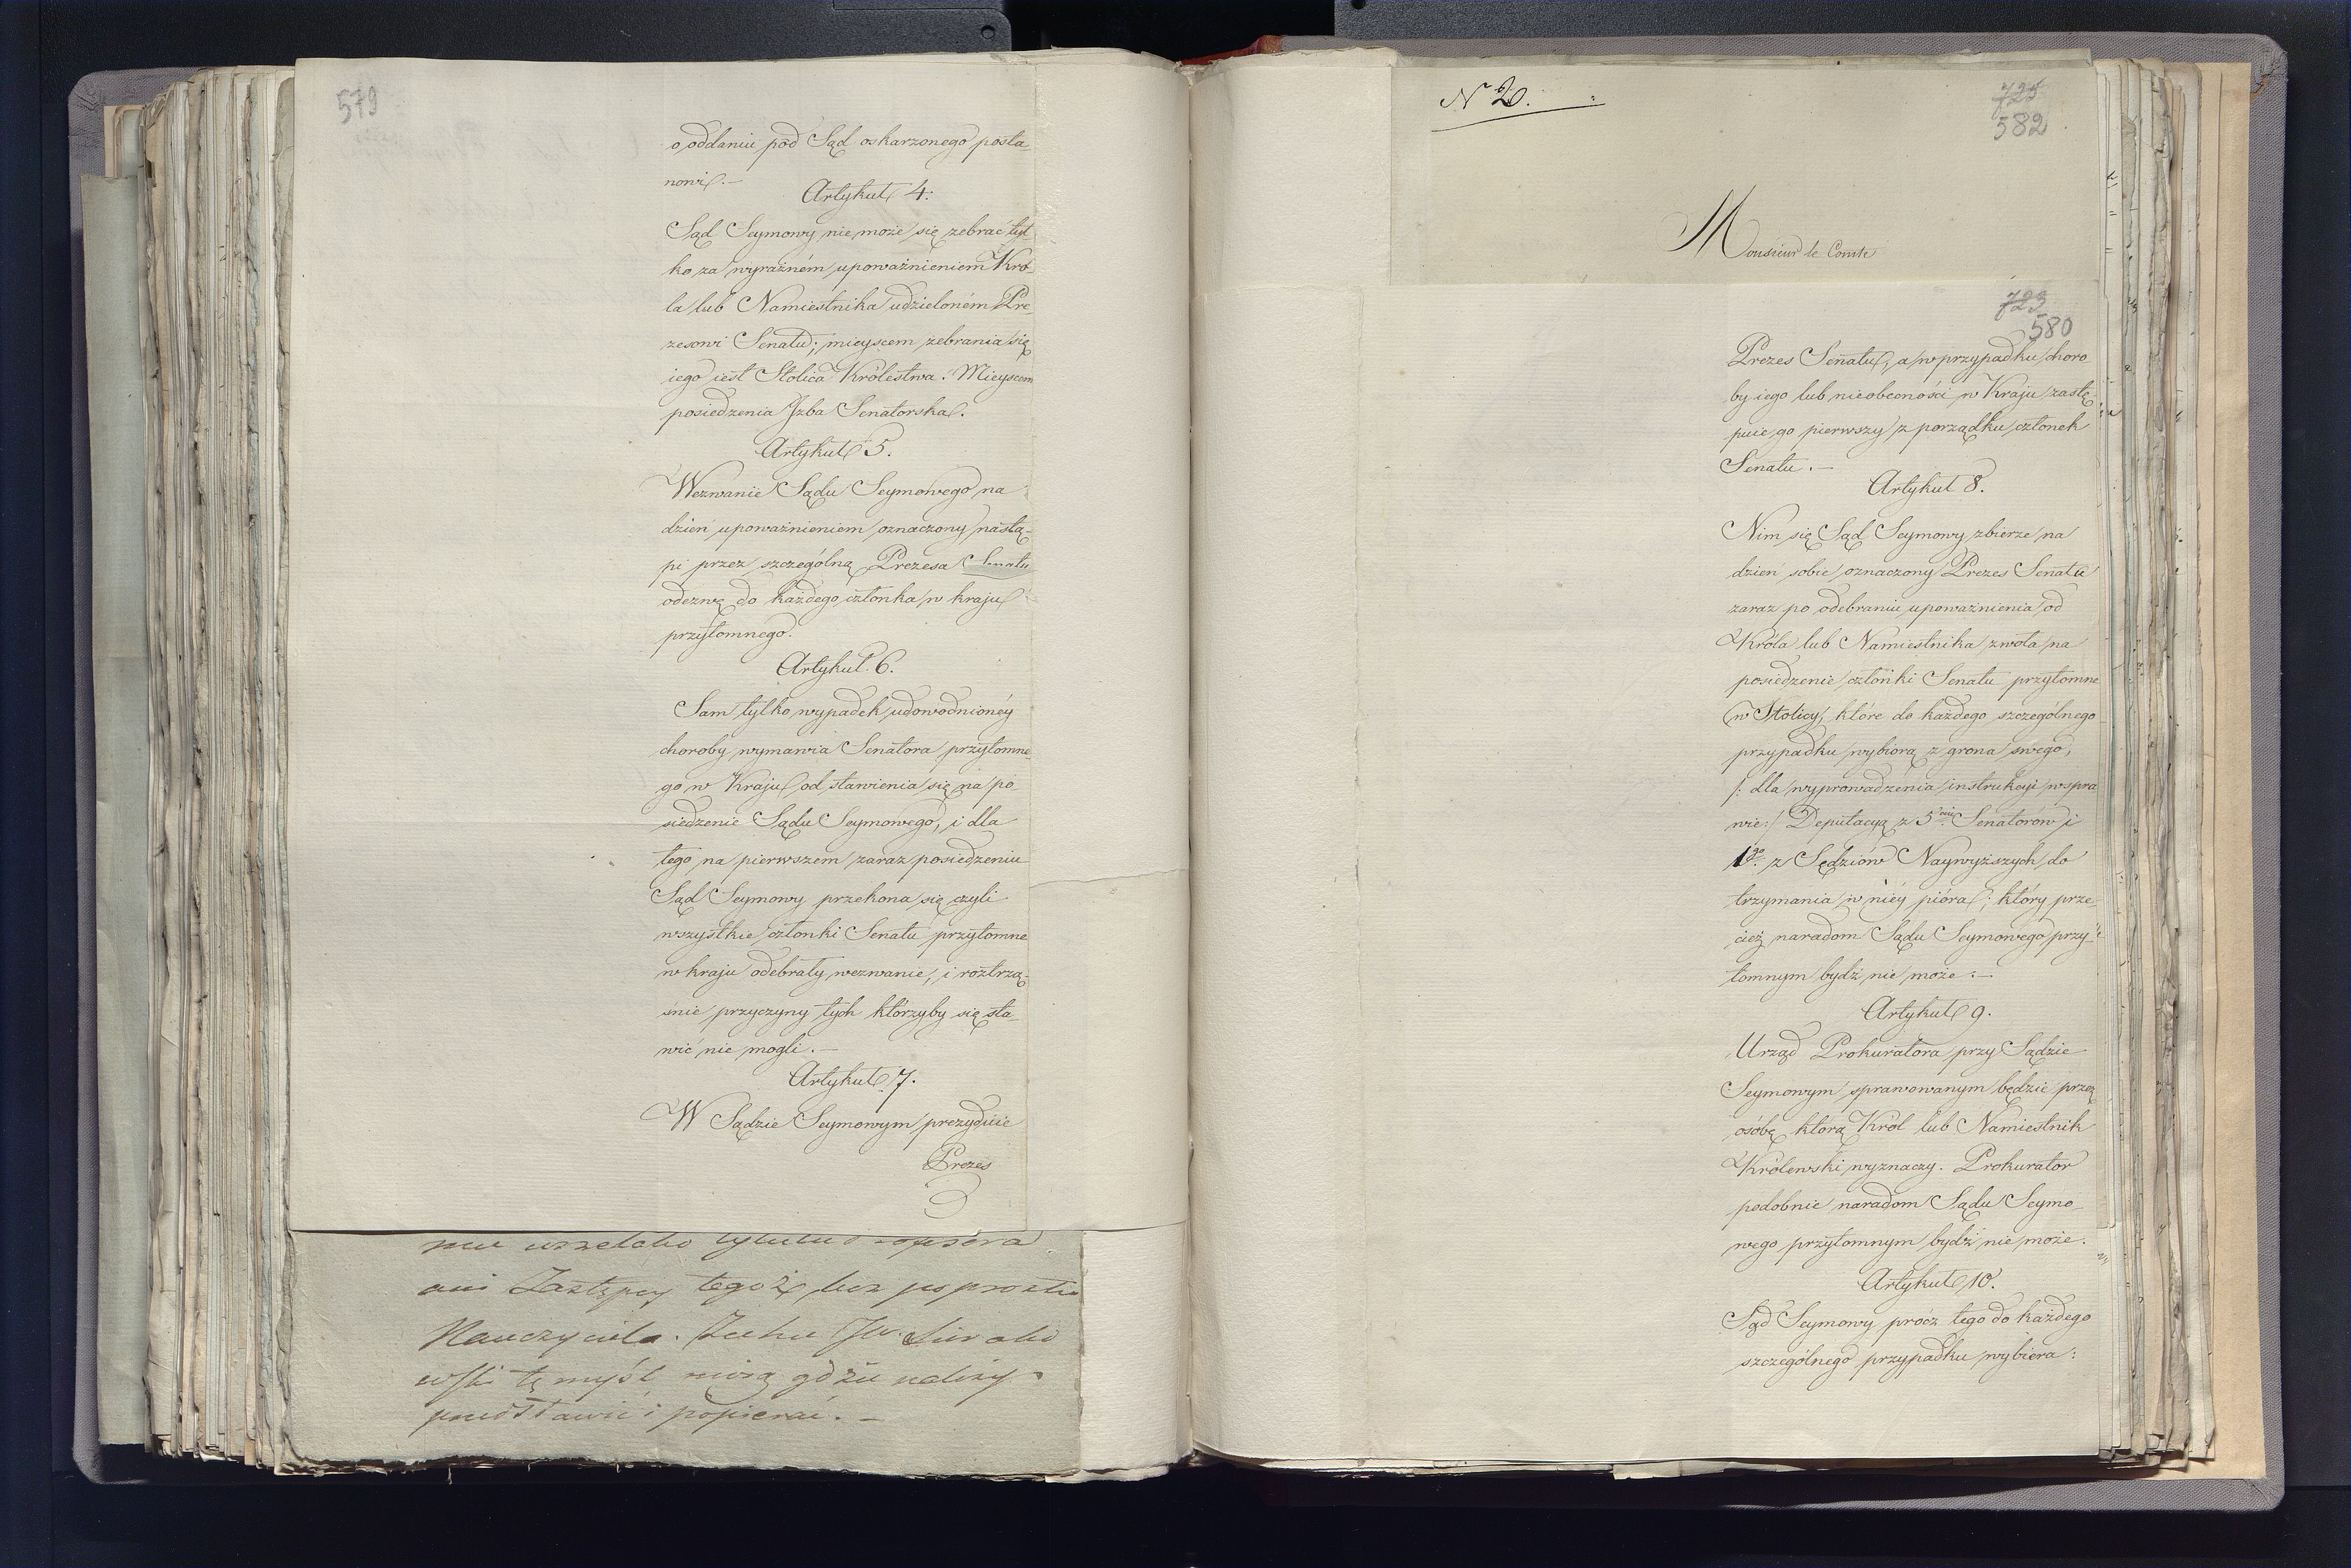 579
o oddaniu pod Sąd oskarzonego posta-
nowi.—
Artykuł 4.
Sąd Seymowy nie może się zebrać tyl-
ko za wyraźném upoważnieniem Kró-
la lub Namiestnika udzieloném Pre-
zesowi Senatu; mieyscem zebrania się
iego iest Stolica Królestwa. Mieyscem
posiedzenia Izba Senatorska.
Artykuł 5.
Wezwanie Sądu Seymowego na
dzień upoważnieniem oznaczony nastą-
pi przez szczególną Prezesa Senatu
odezwę do każdego członka w kraju
przytomnego.
Artykuł 6.
Sam tylko wypadek udowodnioney
choroby wymawia Senatora przytomne-
go w Kraju od stawienia się na po-
siedzenie Sądu Seymowego, i dla
tego na pierwszem zaraz posiedzeniu
Sąd Seymowy przekona się czyli
wszystkie członki Senatu przytomne
w kraju odebrały wezwanie, i roztrzą-
śnie przyczyny tych którzyby się sta-
wić nie mogli.—
Artykuł 7.
W Sądzie Seymowym prezyduie
Prezes
ani Zastępcy tegoż, lecz po prostu
Nauczyciela.
tę myśl
przedstawić i popierać.—
N 20.
725
582
Monsieur le Comte
723
580
Prezes Senatu, a w przypadku choro
by iego lub nieobecności w Kraju zastę-
puie go pierwszy z porządku członek
Senatu.—
Artykuł 8.
Nim się Sąd Seymowy zbierze na
dzień sobie oznaczony Prezes Senatu
zaraz po odebraniu upoważnienia od
Króla lub Namiestnika zwoła na
posiedzenie członki Senatu przytomne
w Stolicy, które do każdego szczególnego
przypadku wybiorą z grona swego,
/: dla wyprowadzenia instrukcyi w spra
wie:/ Deputacyą z 5ciu Senatorów i
1go z Sędziów Naywyższych do
trzymania w niéy pióra; który prze-
cież naradom Sądu Seymowego przy-
tomnym bydź nie może.—
Artykuł 9.
Urząd Prokuratora przy Sądzie
Seymowym sprawowanym będzie przez
osobę którą Król lub Namiestnik
Królewski wyznaczy. Prokurator
podobnie naradom Sądu Seymo-
wego przytomnym bydź nie może.
Artykuł 10.
Sąd Seymowy prócz tego do każdego
szczególnego przypadku wybiera: